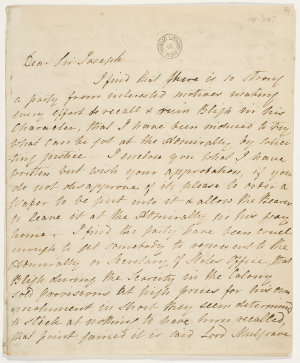 Dear Sir Joseph
I find that there is so strong
a party from interested motives making
every effort to recall & ruin Bligh in his
character, that I have been induced to try
what can be got at the Admiralty by
justice. I enclose you what I have
written but wish your approbation, if you
do not disapprove of it, please to order a
Wafer to be put into it & allow the Bearer
to leave it at the Admiralty in his way
home. I find the party have been cruel
enough to get somebody to represent to the
Admiralty or Secretary of States Office, that
Bligh during the Scarcity in the Colony
sold provisions at high prices for his own
enrichment in short they seem determined
to stick at nothing to have him recalled
that point gained it is said Lord Mulgrave